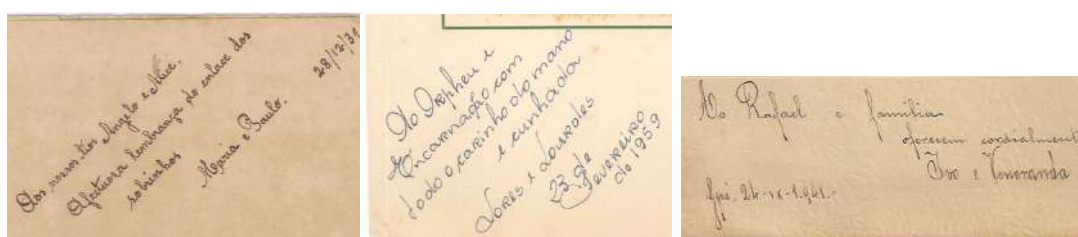 Aos nossos tios Angelo e Alice.
Afetuosa lembrança do enlace dos
sobrinhos
Maria e Paulo.
28/12/31
Ao Orpheu e
Encarnação com
todo o carinho do mano
e cunhada
Lores e Lourdes
23 de
Fevereiro
de 1959
Ao Rafael e família
oferecem cordialmente
Ivo e Veneranda
24-IX-1.941.-